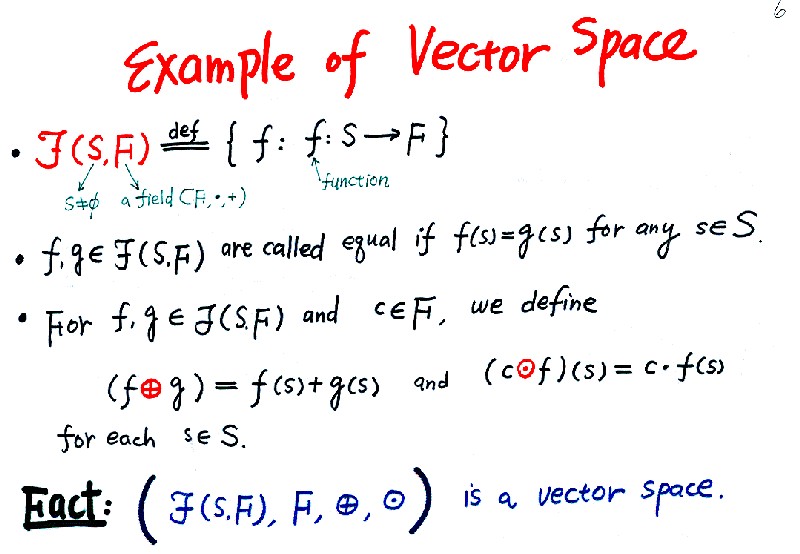 6
Example of Vector Space
• ℱ(S,F) def { f: f: S → F }
S≠ϕ a field (F,•,+) function
• f,g ∈ ℱ(S,F) are called equal if f(s)=g(s) for any s∈S.
• For f,g ∈ ℱ(S,F) and c∈F, we define
(f⊕g) = f(s)+g(s) and (c⊙f)(s) = c•f(s)
for each s∈S.
Fact: (ℱ(S,F), F, ⊕, ⊙) is a vector space.